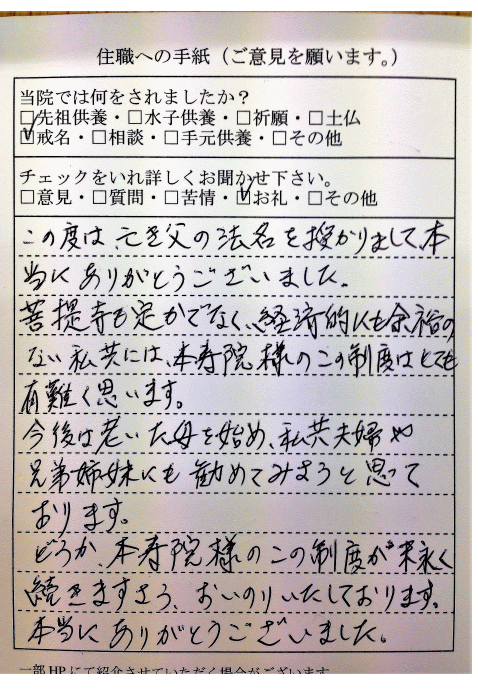 住職への手紙（ご意見を願います。）
当院では何をされましたか？
□先祖供養・□水子供養・□祈願・□土仏
☑戒名・□相談・□手元供養・□その他
チェックをいれ詳しくお聞かせ下さい。
□意見・□質問・□苦情・☑お礼・□その他
この度は、亡き父の法名を授かりまして、本
当にありがとうございました。
菩提寺も定かでなく、経済的にも余裕の
ない私共には、本寿院様のこの制度はとても
有難く思います。
今後は老いた母を始め、私共夫婦や
兄弟姉妹にも勧めてみようと思って
おります。
どうか、本寿院様のこの制度が末永く
続きますよう、おいのりいたしております。
本当にありがとうございました。
一部HPにて紹介させていただく場合がございます